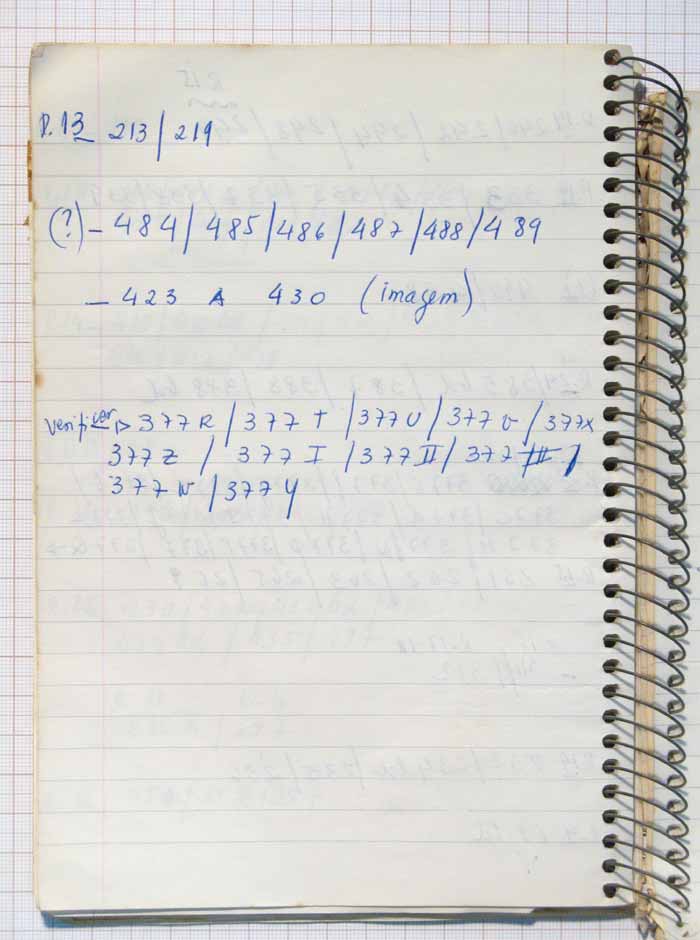 R.13 213 / 219
(?) - 484 / 485 / 486 / 487 / 488 / 489
- 423 A 430 (imagem)
verificar → 377R / 377T / 377U / 377V / 377X
377Z / 377 I / 377 II / 377 III /
377W / 377Y